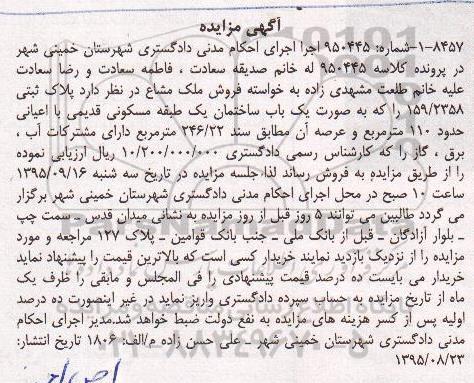 آگهی مزایده
۱-۸۴۵۷-شماره: ۹۵۰۴۴۵ اجرا اجرای احکام مدنی دادگستری شهرستان خمینی شهر
در پرونده کلاسه ۹۵۰۴۴۵ له خانم صدیقه سعادت ، فاطمه سعادت و رضا سعادت
علیه خانم طلعت مشهدی زاده به خواسته فروش ملک مشاع در نظر دارد پلاک ثبتی
۱۵۹/۲۳۵۸ را که به صورت یک باب ساختمان یک طبقه مسکونی قدیمی با اعیانی
حدود ۱۱۰ مترمربع و عرصه آن مطابق سند ۲۴۶/۲۲ مترمربع دارای مشترکات آب ،
برق ، گاز را که کارشناس رسمی دادگستری ۱۰/۲۰۰/۰۰۰/۰۰۰ ریال ارزیابی نموده
را از طریق مزایده به فروش رساند لذا جلسه مزایده در تاریخ سه شنبه ۱۳۹۵/۰۹/۱۶
ساعت ۱۰ صبح در محل اجرای احکام مدنی دادگستری شهرستان خمینی شهر برگزار
می گردد طالبین می توانند ۵ روز قبل از روز مزایده به نشانی میدان قدس ـ سمت چپ
ـ بلوار آزادگان ـ قبل از بانک ملی ـ جنب بانک قوامین ـ پلاک ۱۲۷ مراجعه و مورد
مزایده را از نزدیک بازدید نمایند خریدار کسی است که بالاترین قیمت را پیشنهاد نماید
خریدار می بایست ده درصد قیمت پیشنهادی را فی المجلس و مابقی را ظرف یک
ماه از تاریخ مزایده به حساب سپرده دادگستری واریز نماید در غیر اینصورت ده درصد
اولیه پس از کسر هزینه های مزایده به نفع دولت ضبط خواهد شد.مدیر اجرای احکام
مدنی دادگستری شهرستان خمینی شهر ـ علی حسن زاده م/الف: ۱۸۰۶ تاریخ انتشار:
۱۳۹۵/۰۸/۲۳